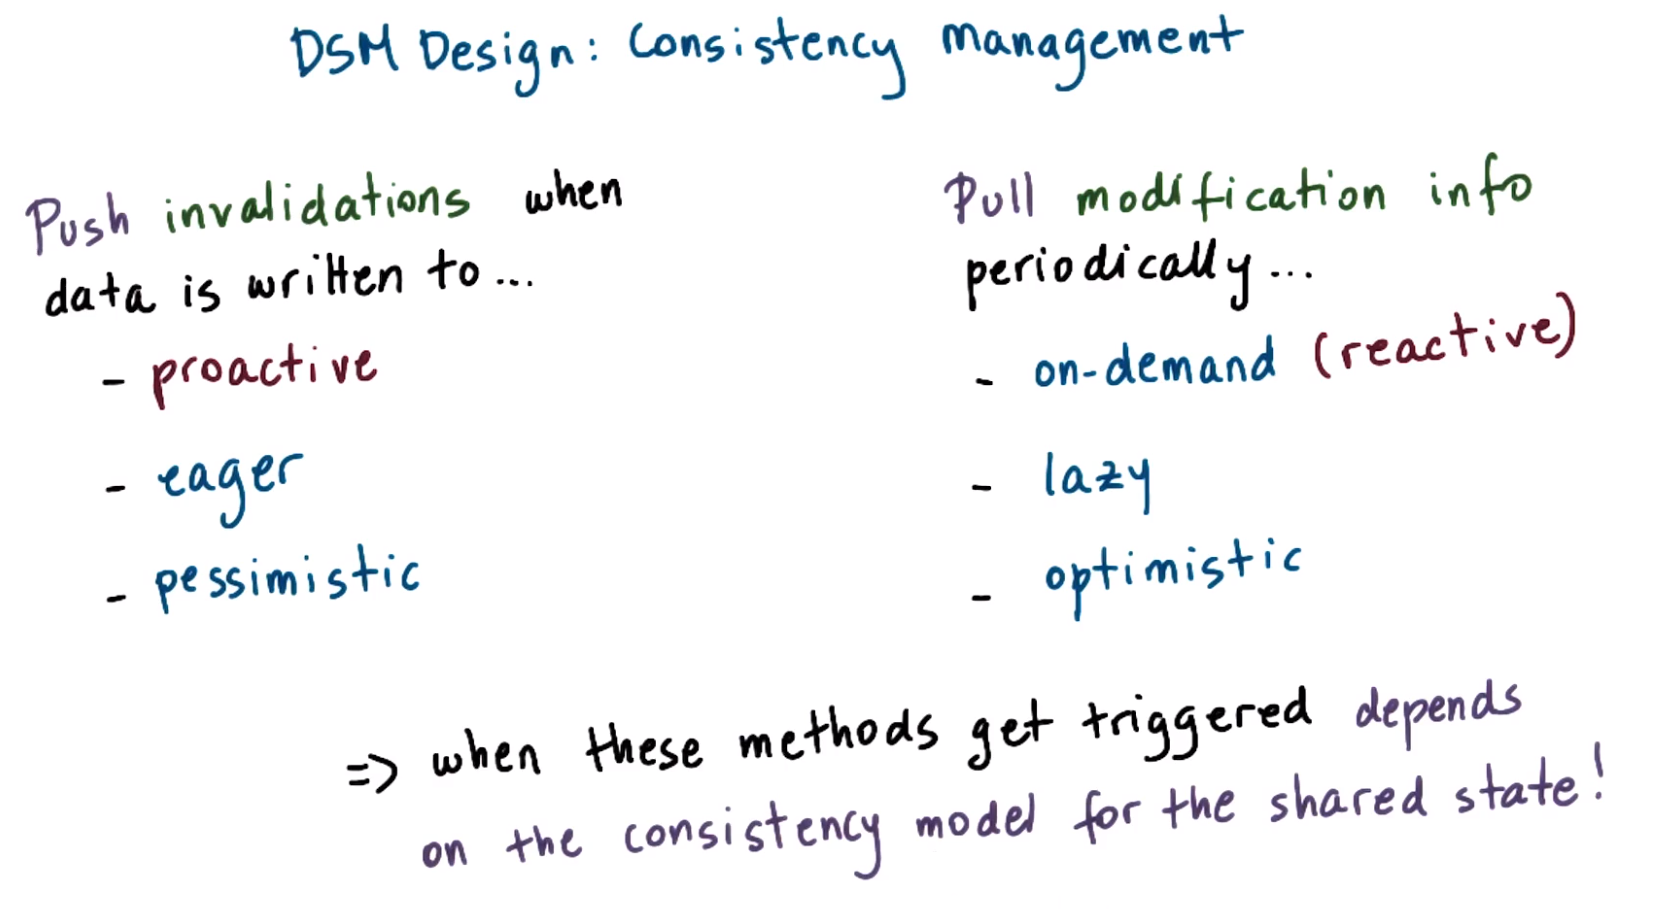 DSM Design: Consistency Management
Push invalidations when
data is written to...
- proactive
- eager
- pessimistic
Pull modification info
periodically...
- on-demand (reactive)
- lazy
- optimistic
=> when these methods get triggered depends
on the consistency model for the shared state!